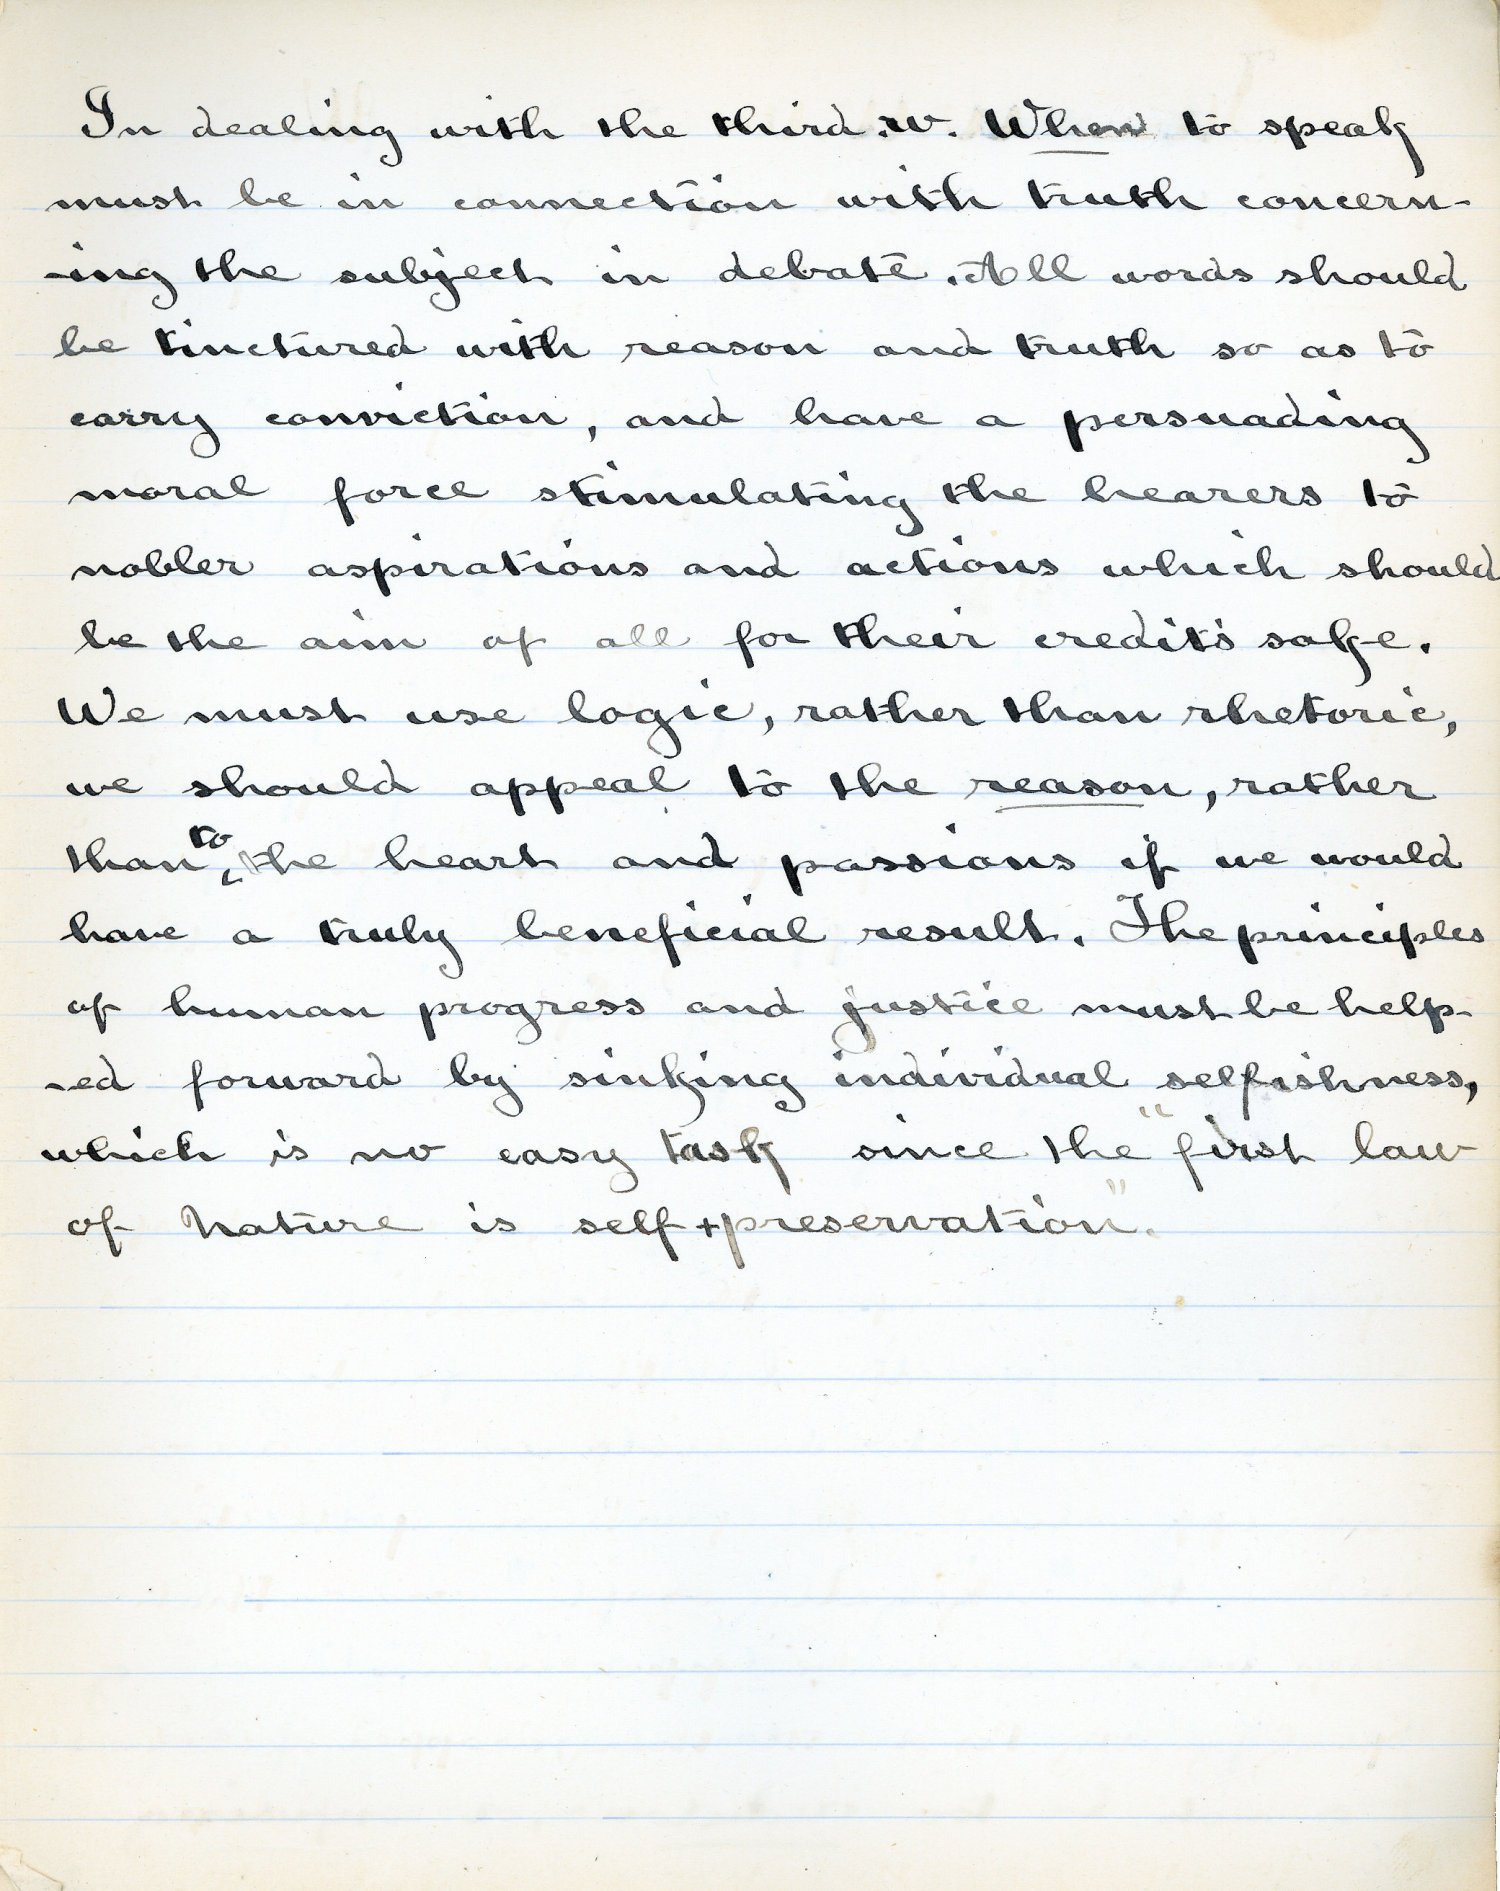 In dealing with the third .w. When to speak
must be in connection with truth concern-
-ing the subject in debate. All words should
be tinctured with reason and truth so as to
carry conviction, and have a persuading
moral force stimulating the hearers to
nobler aspirations and actions which should
be the aim of all for their credit's sake.
We must use logic, rather than rhetoric,
we should appeal to the reason, rather
than to the heart and passions if we would
have a truly beneficial result. The principles
of human progress and justice must be help-
-ed forward by sinking individual selfishness,
which is no easy task since the "first law
of Nature is self-preservation".